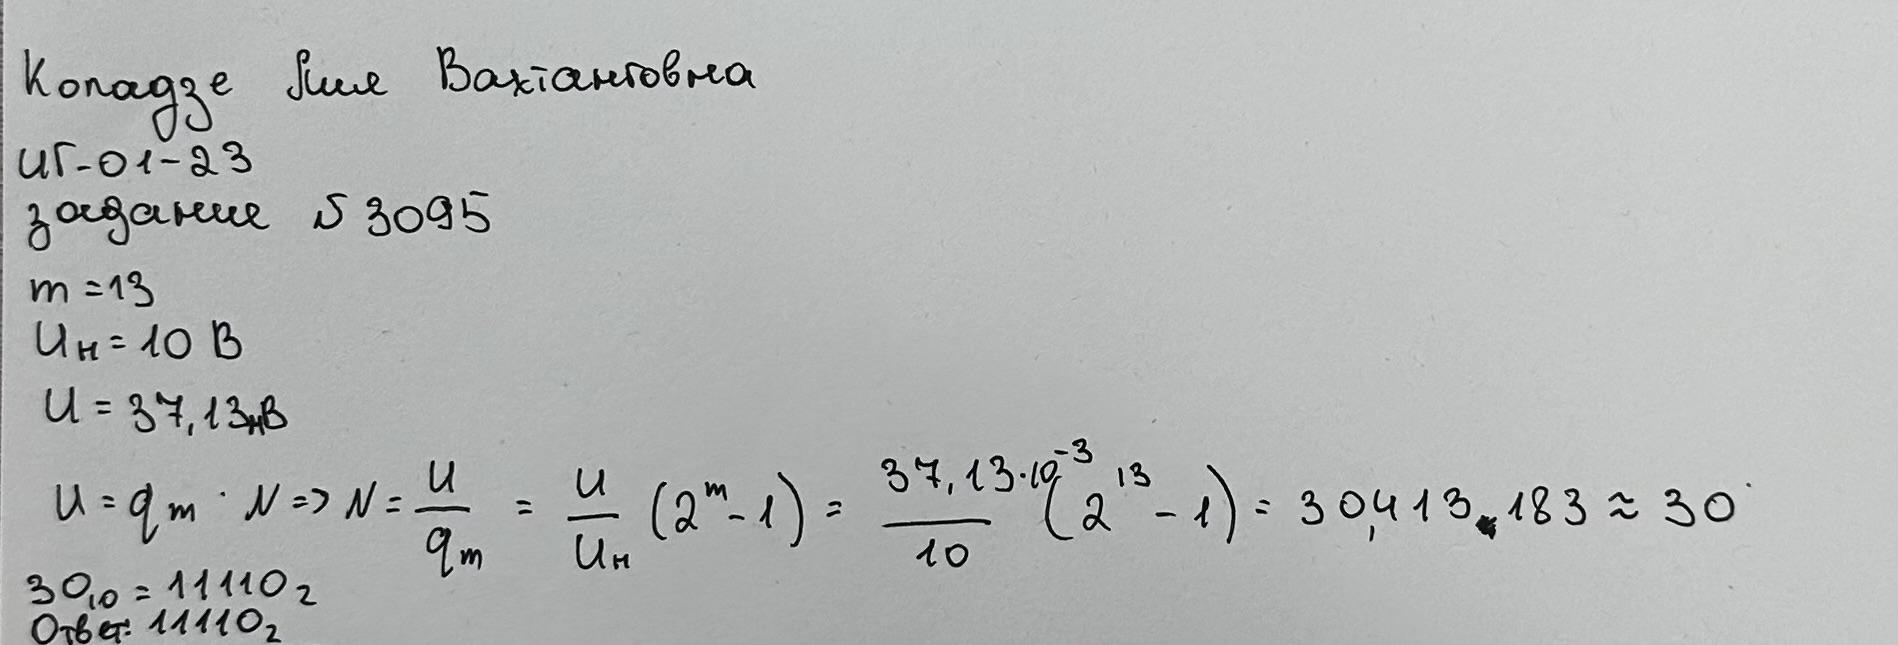 Копадзе Лия Вахтанговна
ИГ-01-23
задание № 3095
m = 13
Uн = 10 В
U = 37,13 мВ
U = qm · N => N = U/qm = U/Uн (2^m - 1) = 37,13·10^-3/10 (2^13 - 1) = 30,413183 ≈ 30
30₁₀ = 11110₂
Ответ: 11110₂